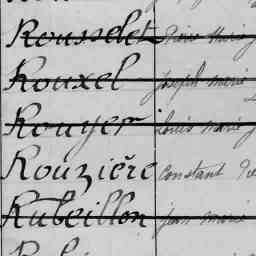 Rousselet Pierre Marie
Rouxel Joseph marie
Rouyer Louis marie
Rouzière Constant
Rubeillon jean marie